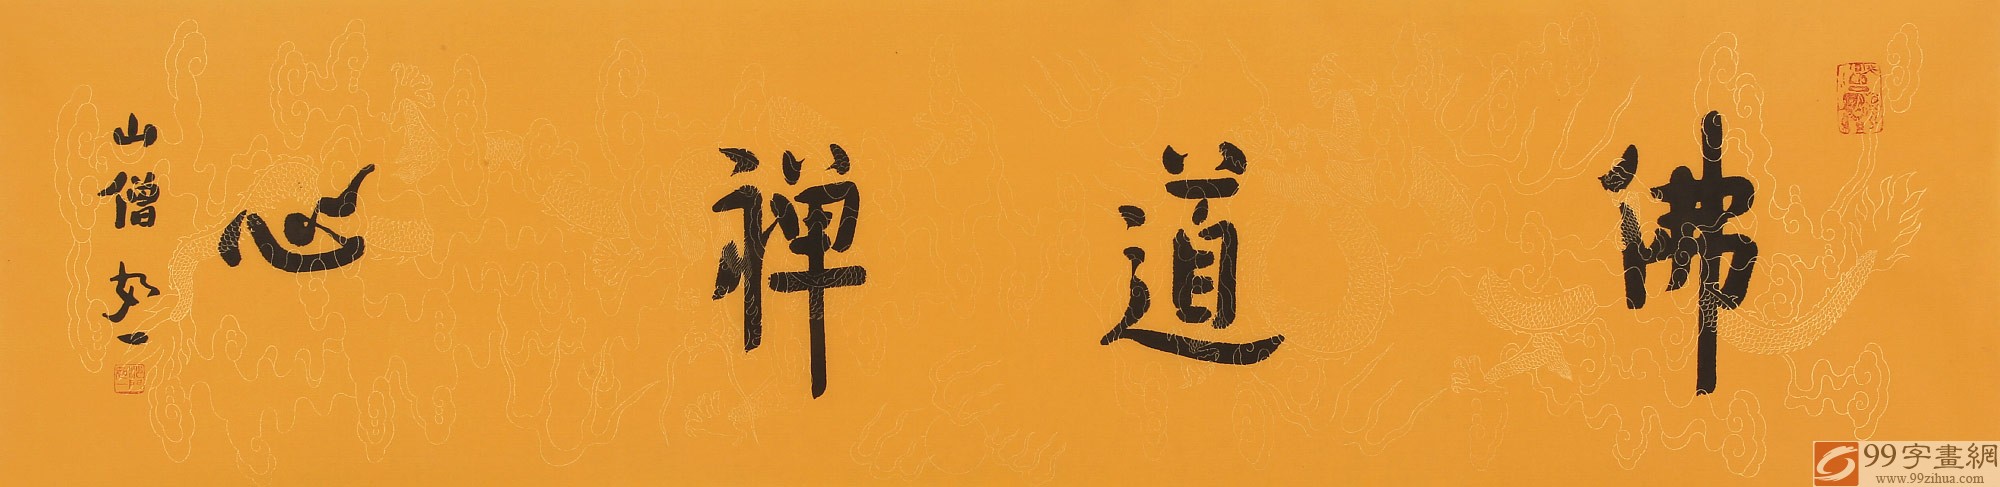 佛道禅心
山僧如一
99字畫網
www.99zihua.com